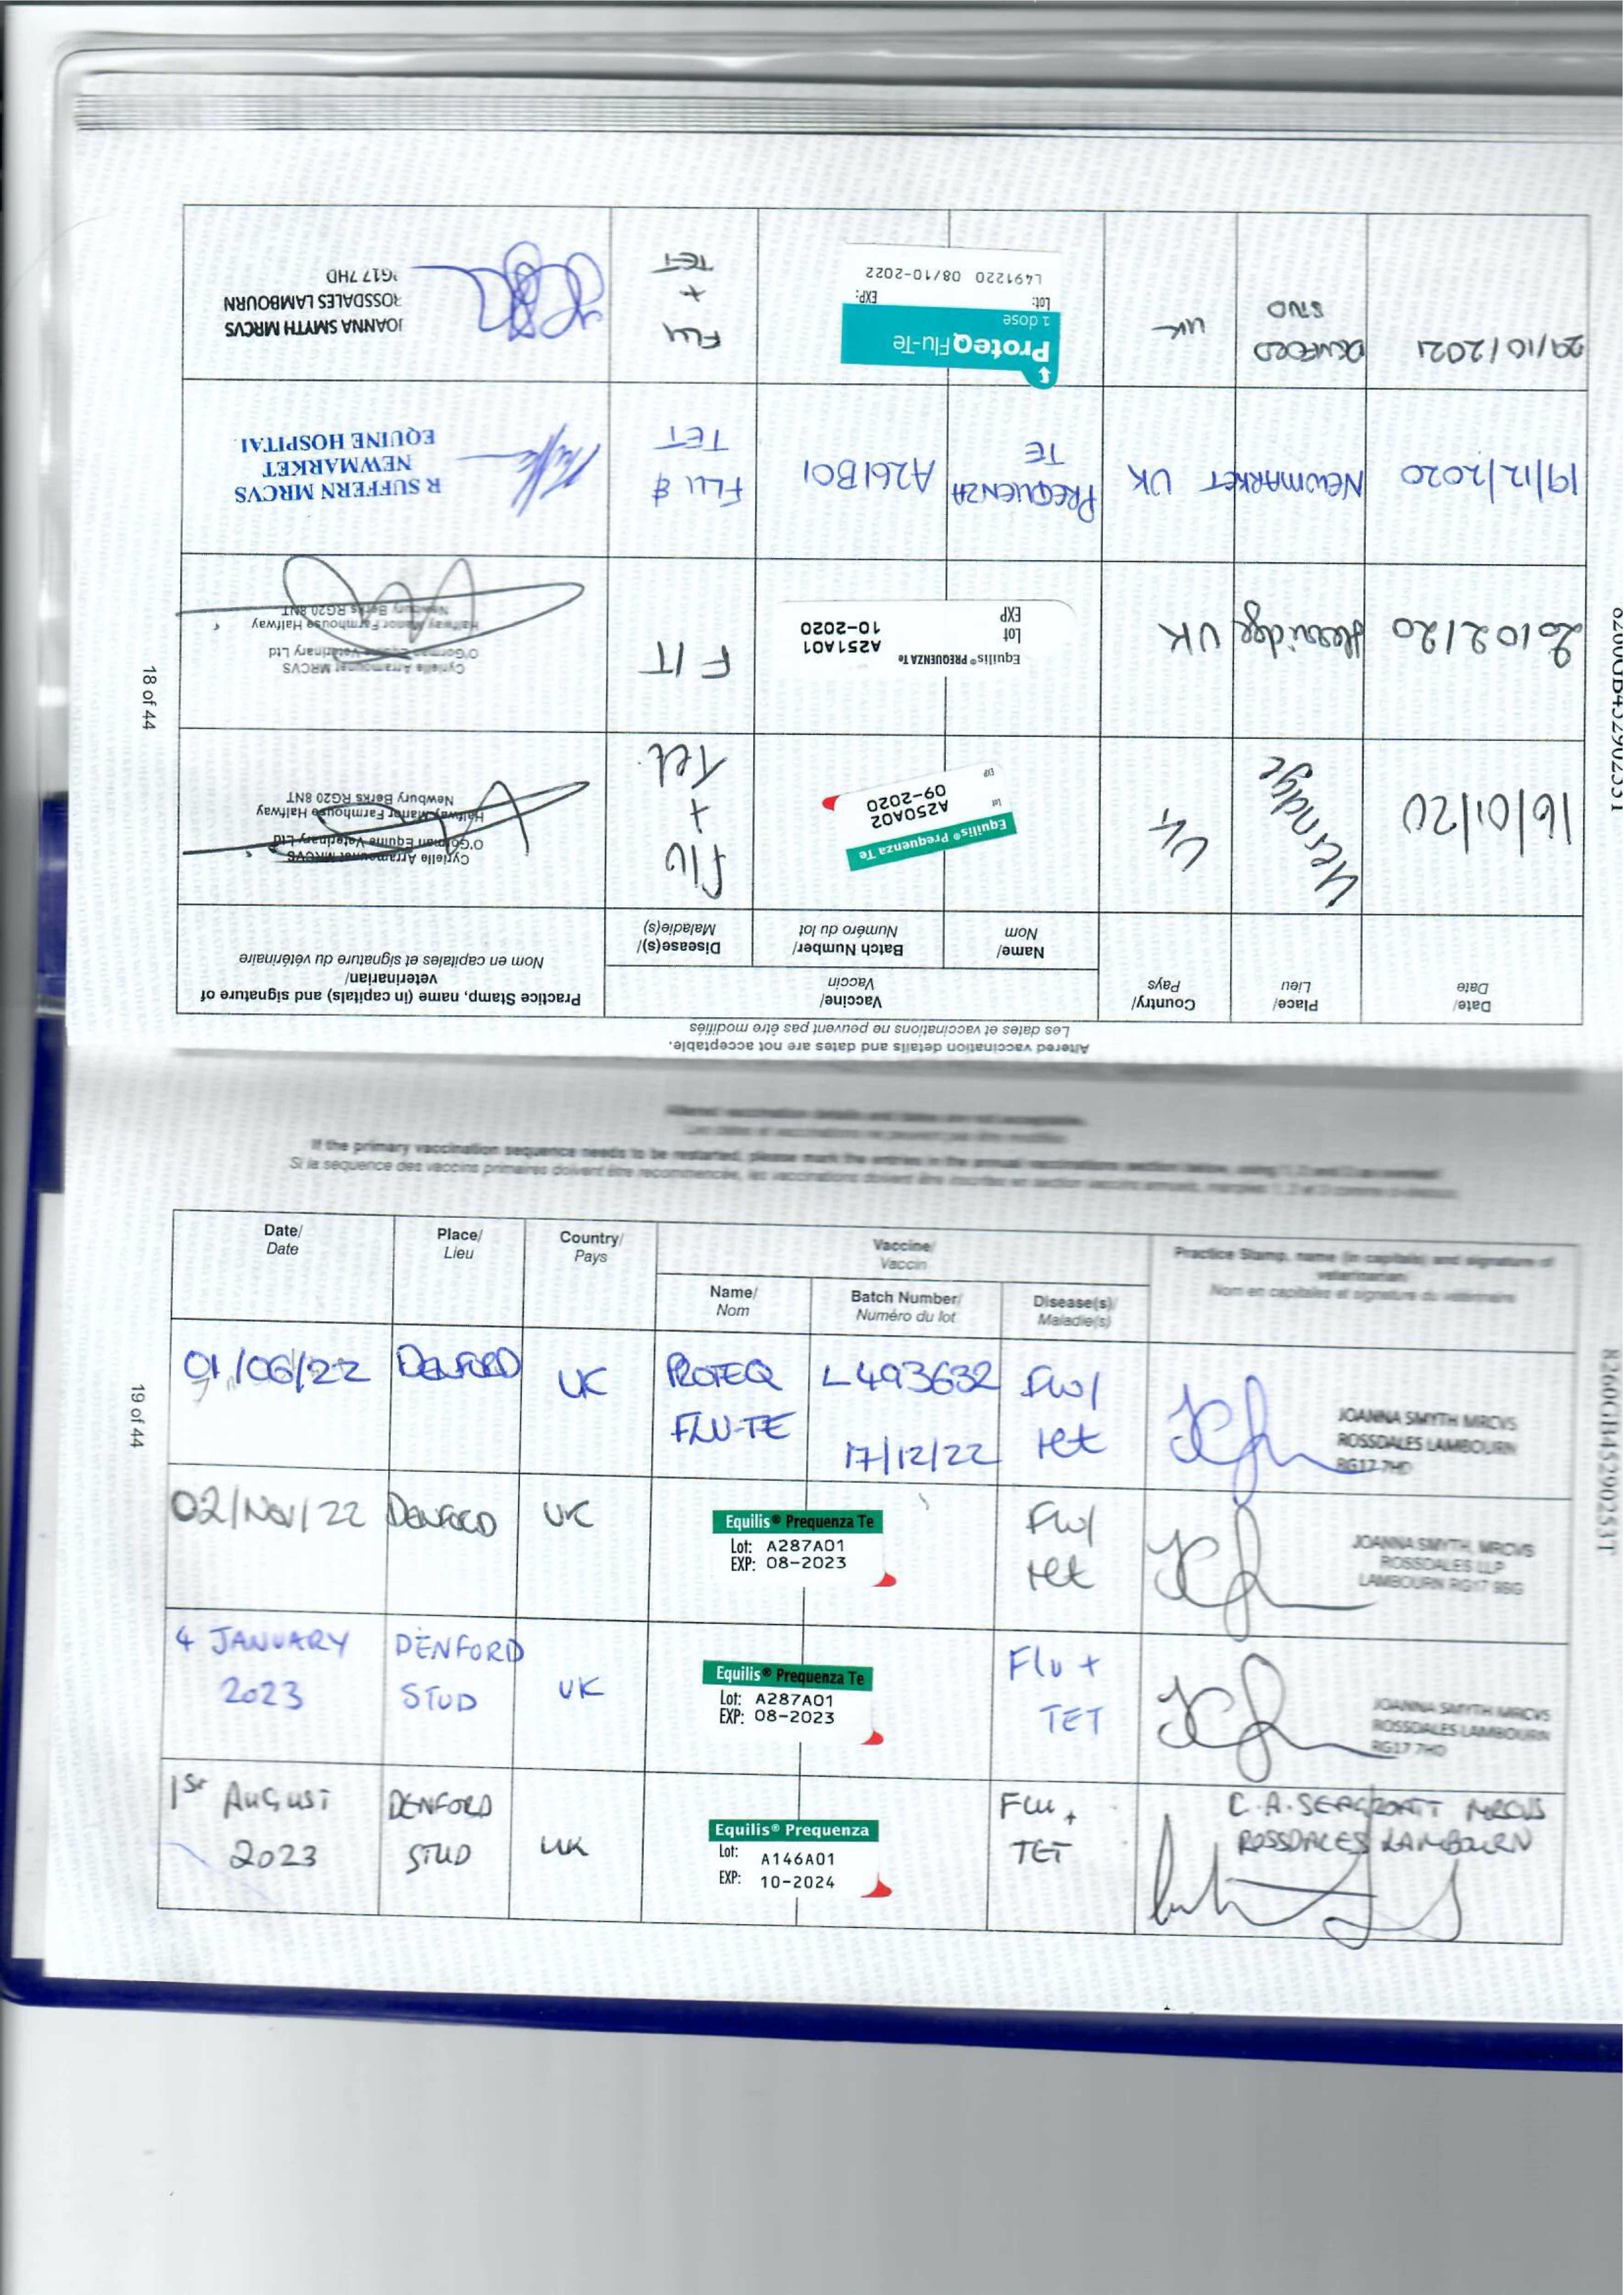 Altered vaccination details and dates are not acceptable.
Les dates et vaccinations ne peuvent pas être modifiés
Date/ Date
Place/ Lieu
Country/ Pays
Vaccine/ Vaccin
Name/ Nom
Batch Number/ Numéro du lot
Disease(s)/ Maladie(s)
Practice Stamp, name (in capitals) and signature of
veterinarian/
Nom en capitales et signature du vétérinaire
16/01/20
Equilis® Prequenza Te
Lot A250A02
EXP 09-2020
Flu
+
Tet.
Cyrielle Arramounet MRCVS
O'Gorman Equine Veterinary Ltd
Halfway Manor Farmhouse Halfway
Newbury Berks RG20 8NT
20/02/20
UK
Equilis® PREQUENZA Te
Lot A251A01
EXP 10-2020
F/T
Cyrielle Arramounet MRCVS
O'Gorman Equine Veterinary Ltd
Halfway Manor Farmhouse Halfway
Newbury Berks RG20 8NT
19/12/2020
NEWMARKET
UK
PREQUENZA
TE
A261B01
FLU &
TET
R SUFFERN MRCVS
NEWMARKET
EQUINE HOSPITAL
29/10/2021
DENFORD
STUD
UK
ProteqFlu-Te
1 dose
Lot: EXP:
L491220 08/10-2022
FLU
+
TET
JOANNA SMYTH MRCVS
ROSSDALES LAMBOURN
RG17 7HD
18 of 44
Altered vaccination details and dates are not acceptable.
Les dates et vaccinations ne peuvent pas être modifiés
If the primary vaccination sequence needs to be restarted, please mark the entries in the annual vaccinations section below, using 1, 2 and 3 as needed
Si la séquence des vaccins primaires doivent être recommencée, les vaccinations doivent être inscrites en section vaccins annuels, marquées 1, 2 et 3 comme ci-dessus.
Date/ Date
Place/ Lieu
Country/ Pays
Vaccine/ Vaccin
Name/ Nom
Batch Number/ Numéro du lot
Disease(s)/ Maladie(s)
Practice Stamp, name (in capitals) and signature of
veterinarian/
Nom en capitales et signature du vétérinaire
01/06/22
DENFORD
UK
PROTEQ
FLU-TE
L493632
17/12/22
Flu/
tet
JOANNA SMYTH MRCVS
ROSSDALES LAMBOURN
RG17 7HD
02/Nov/22
DENFORD
UK
Equilis® Prequenza Te
Lot: A287A01
EXP: 08-2023
Flu/
tet
JOANNA SMYTH, MRCVS
ROSSDALES LLP
LAMBOURN RG17 8BG
4 JANUARY
2023
DENFORD
STUD
UK
Equilis® Prequenza Te
Lot: A287A01
EXP: 08-2023
Flu +
TET
JOANNA SMYTH MRCVS
ROSSDALES LAMBOURN
RG17 7HD
1st AUGUST
2023
DENFORD
STUD
UK
Equilis® Prequenza
Lot: A146A01
EXP: 10-2024
FLU +
TET
C.A. MRCVS
ROSSDALES LAMBOURN
19 of 44